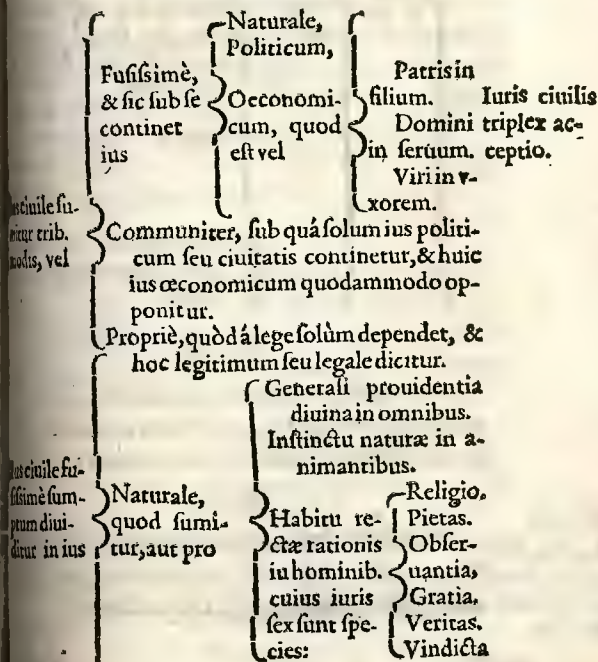 ciuile ſu-
trib.
vel
Fuſiſsimè,
& ſic ſub ſe
continet
ius
Naturale,
Politicum,
Oeconomi-
cum, quod
eſt vel
Patris in
filium.
Domini
in ſeruum.
Viri in v-
xorem.
Iuris ciuilis
triplex ac-
ceptio.
Communiter, ſub quá ſolum ius politi-
cum ſeu ciuitatis continetur, & huic
ius œconomicum quodammodo op-
ponitur.
Propriè, quòd á lege ſolùm dependet, &
hoc legitimum ſeu legale dicitur.
ciuile fu-
ſiſsimè ſum-
ptum diui-
ditur in ius
Naturale,
quod ſumi-
tur, aut pro
Generali prouidentia
diuina in omnibus.
Inſtinctu naturæ in a-
nimantibus.
Habitu re-
ctæ rationis
iu hominib.
cuius iuris
ſex ſunt ſpe-
cies:
Religio.
Pietas.
Obſer-
uantia,
Gratia.
Veritas.
Vindicta